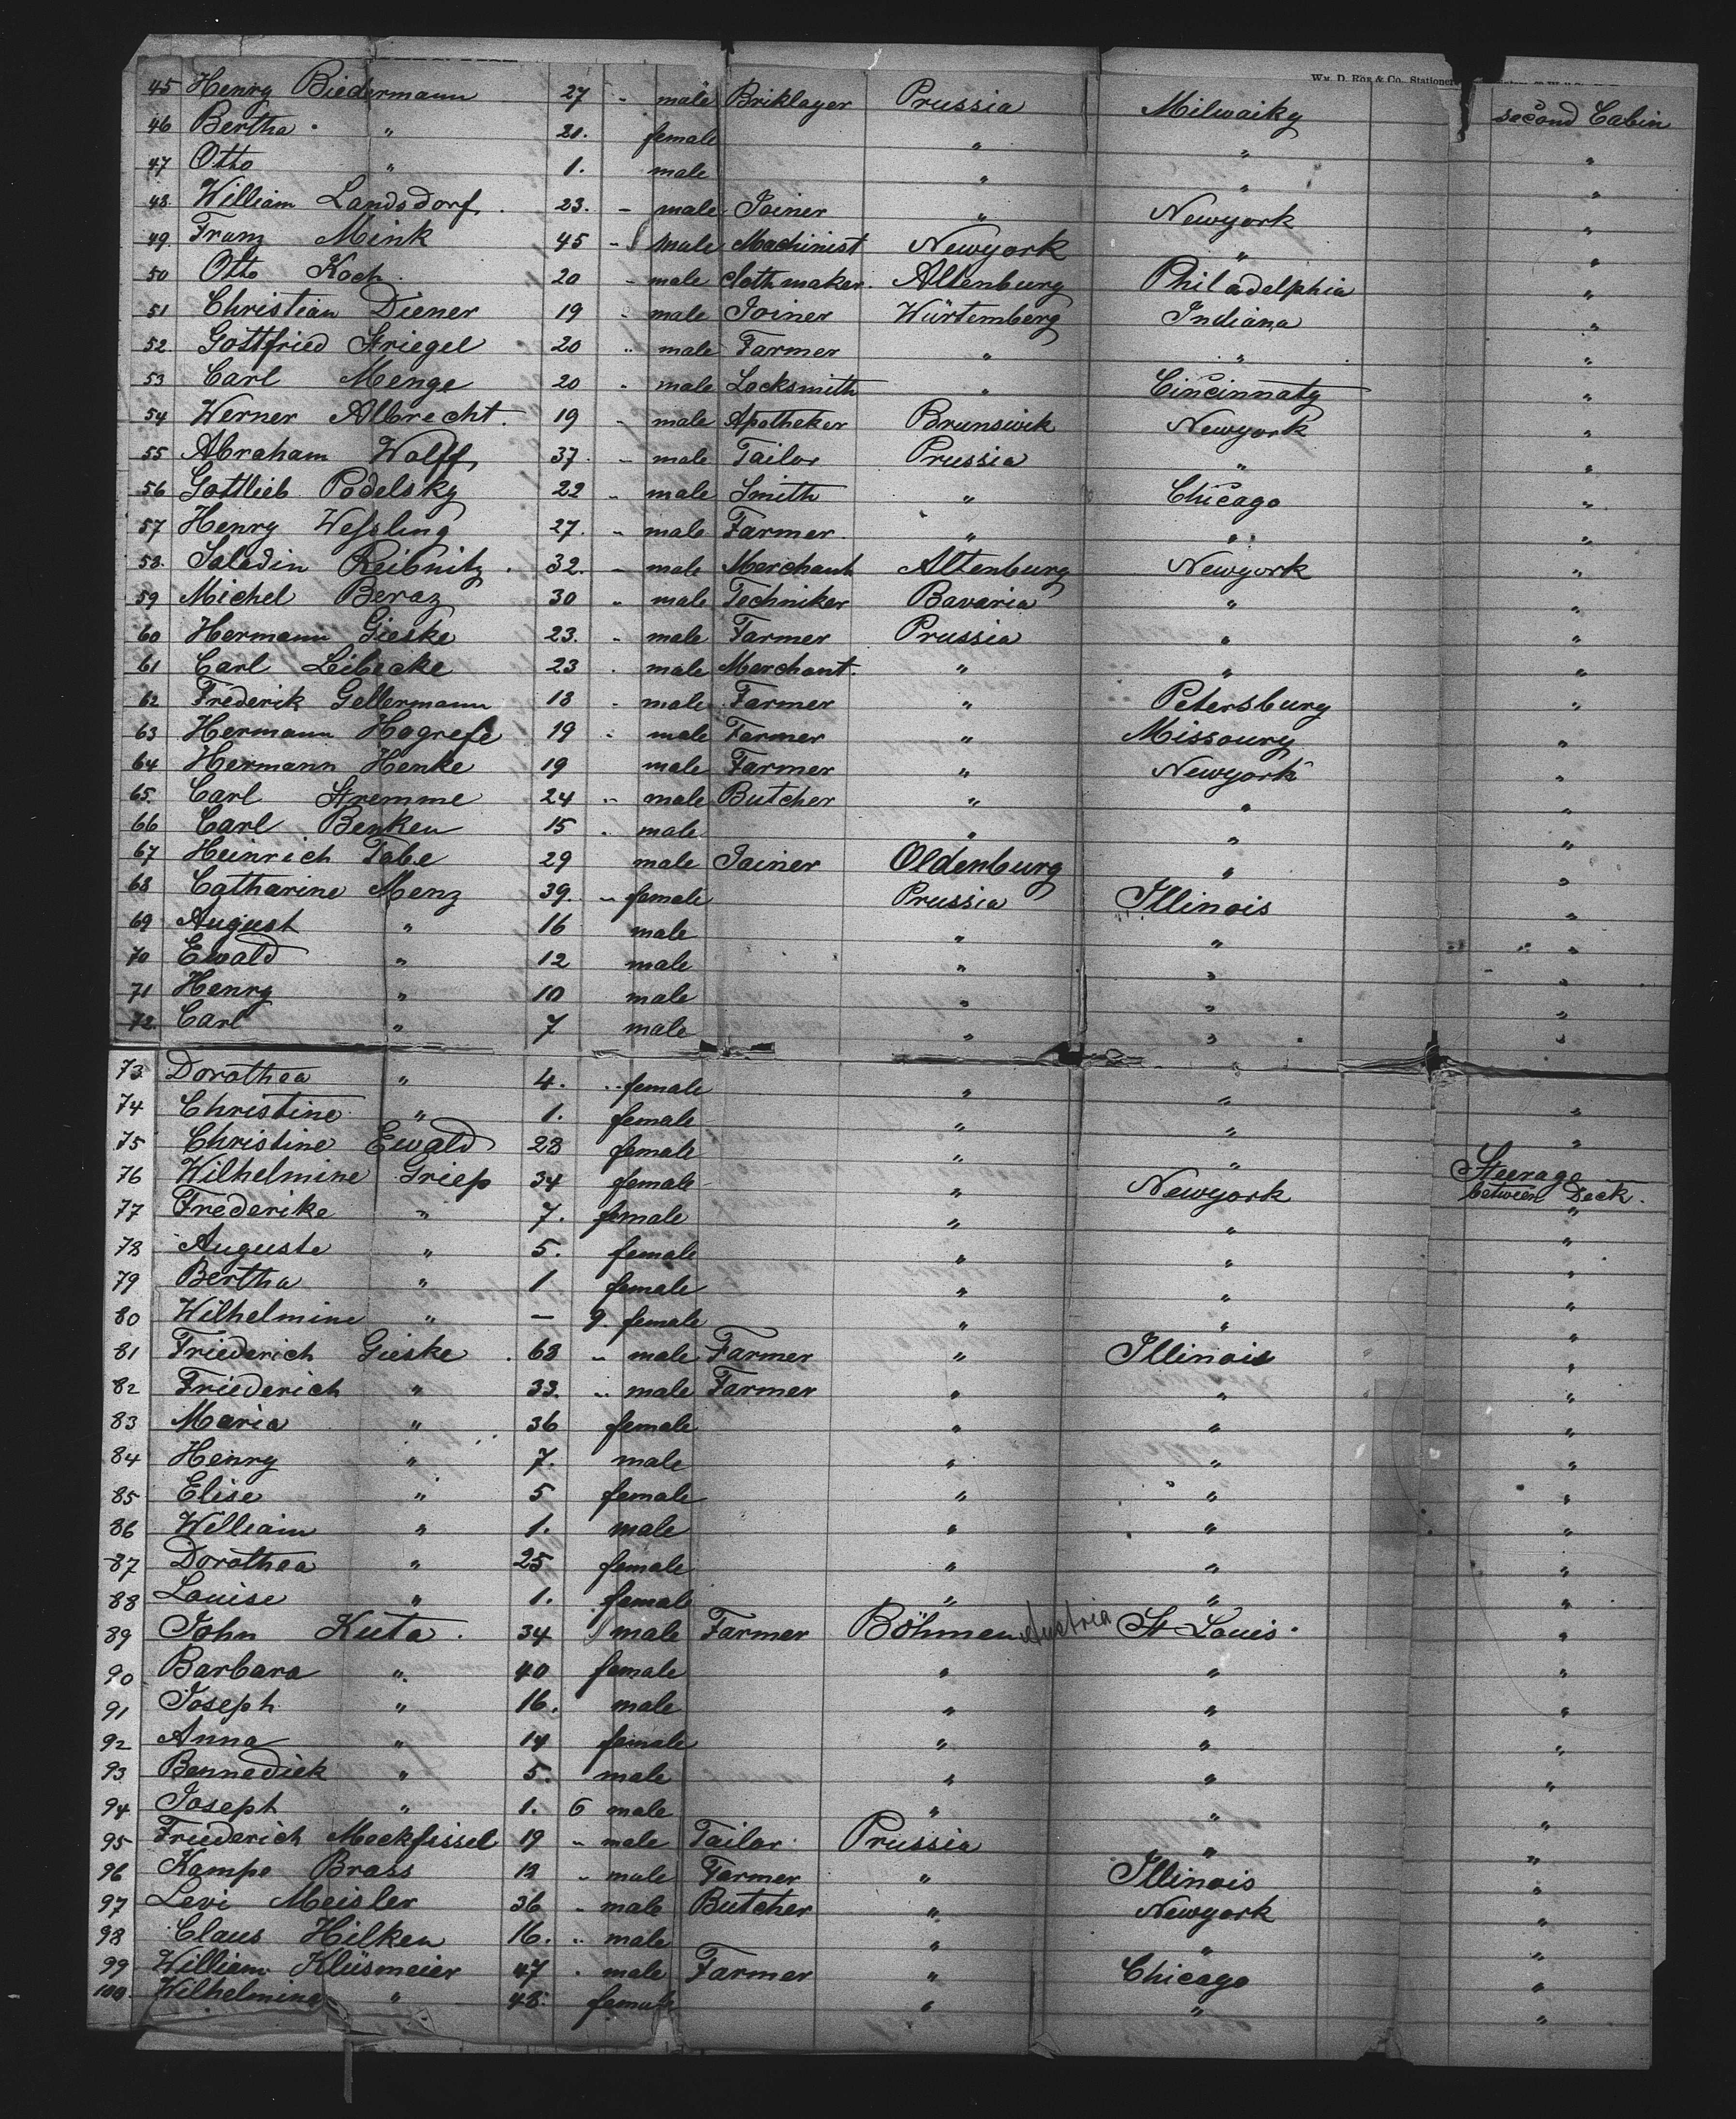 Wm. D. Roe & Co., Stationer
45 Henry Biedermann 27 " male Briklayer Prussia Milwaiky second Cabin
46 Bertha " 21. female " " "
47 Otto " 1. male " " "
48. William Landsdorf. 23. " male Joiner " Newyork "
49. Franz Mink 45 " male Machinist Newyork " "
50 Otto Koch 20 " male Clothmaker. Altenburg Philadelphia "
51 Christian Diener 19 " male Joiner Würtemberg Indiana "
52. Gottfried Striegel 20 " male Farmer " " "
53 Carl Menge 20 " male Locksmith " Cincinnaty "
54 Werner Albrecht. 19 " male Apotheker Brunswik Newyork "
55 Abraham Wolff 37. " male Tailor Prussia " "
56 Gottlieb Podelsky 22 " male Smith " Chicago "
57 Henry Weſsling 27. " male Farmer. " " "
58. Saladin Reibnitz. 32. " male Merchant Altenburg Newyork "
59 Michel Beraz 30 " male Techniker Bavaria " "
60 Hermann Gieske 23. " male Farmer Prussia " "
61 Carl Leibecke 23 " male Merchant. " " "
62 Frederik Gellermann 18 " male Farmer " Petersburg "
63 Hermann Hogrefe 19 " male Farmer " Missoury "
64 Hermann Henke 19 male Farmer " Newyork "
65. Carl Stremme 24 " male Butcher " " "
66 Carl Benken 15 " male " " "
67 Heinrich Tabe 29 male Joiner Oldenburg " "
68 Catharine Menz 39. " female Prussia Illinois "
69 August " 16 male " " "
70 Ewald " 12 male " " "
71 Henry " 10 male " " "
72. Carl " 7 male " " "
73 Dorothea " 4. " female " " "
74 Christine " 1. female " " "
75 Christine Ewald 28 female " "
76 Wilhelmine Griep 34 female " Newyork Steerage between Deck.
77 Frederike " 7. female " " "
78 Auguste " 5. female " " "
79 Bertha " 1 female " " "
80 Wilhelmine " — 9. female " " "
81 Friederich Gieske. 68 " male Farmer " Illinois "
82 Friederich " 33. " male Farmer " " "
83 Maria " 36 female " " "
84 Henry " 7. male " " "
85 Elise " 5 female " " "
86 William " 1. male " " "
87 Dorothea " 25 female " " "
88 Louise " 1. female " " "
89 John Kuta. 34 male Farmer Böhmen Austria St Louis. "
90 Barbara " 40 female " " "
91 Joseph " 16. male " " "
92 Anna " 14 female " " "
93 Bennedick " 5. male " " "
94 Joseph " 1. 6 male " " "
95 Friederich Meckfissel 19 " male Tailor Prussia " "
96 Kampe Brass 18 " male Farmer " Illinois "
97 Levi Meisler 36 " male Butcher " Newyork "
98 Claus Hilken 16. " male " " "
99 William Klüsmeier 47 " male Farmer " Chicago "
100. Wilhelmine " 48. female " " "